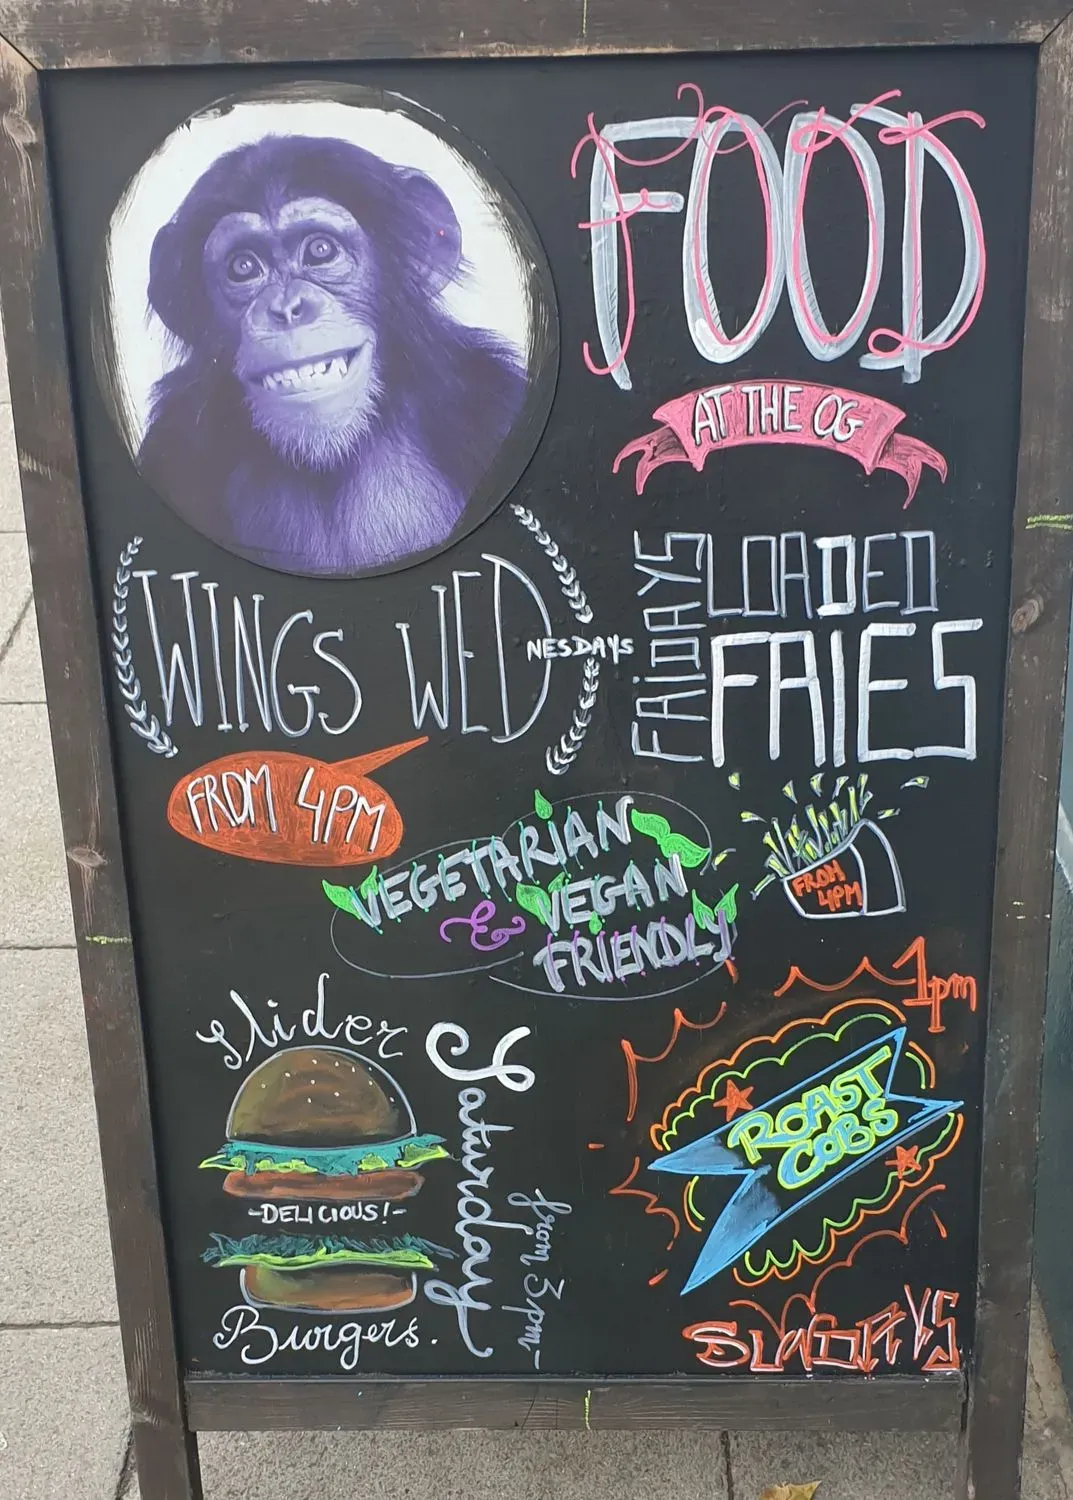 FOOD
AT THE OG
WINGS WEDNESDAYS
FROM 4PM
FRIDAYS
LOADED
FRIES
FROM
4PM
VEGETARIAN
& VEGAN
FRIENDLY
Slider
-DELICIOUS!-
Burgers.
Saturday
from 3pm-
1pm
ROAST
COBS
SUNDAYS